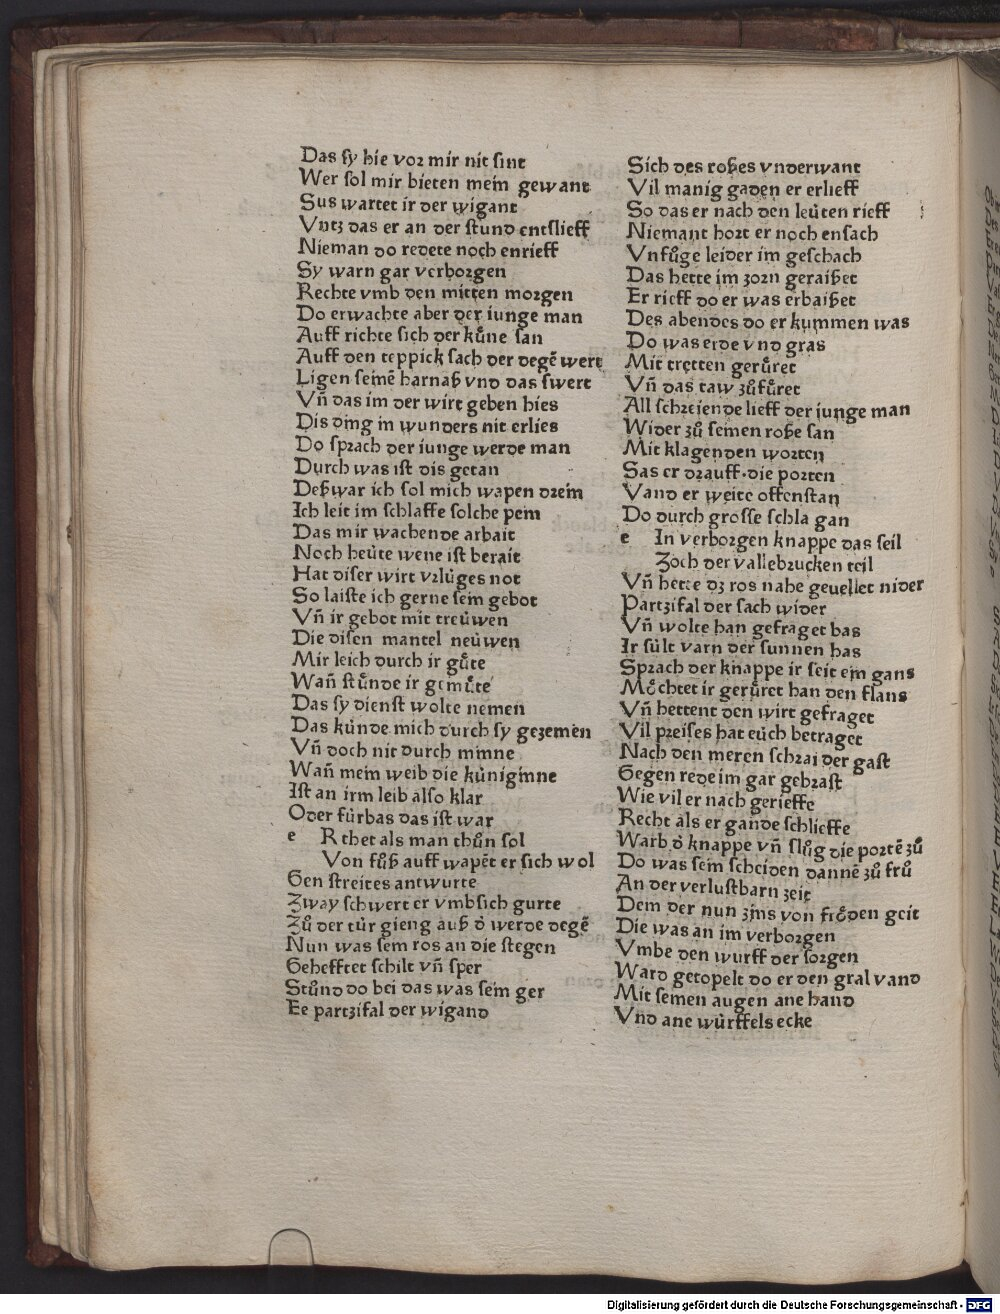 Das ſy hie vor mir nit ſint
Wer ſol mir bieten mein gewant
Sus wartet ir der wigant
Vntz das er an der ſtund entſlieff
Nieman do redete noch enrieff
Sy warn gar verborgen
Rechte vmb den mitten morgen
Do erwachte aber der iunge man
Auff richte ſich der kuͤne ſan
Auff den teppick ſach der degē wert
Ligen ſeinē harnaß vnd das ſwert
Vñ das im der wirt geben hies
Dis ding in wunders nit erlies
Do ſprach der iunge werde man
Durch was iſt dis getan
Deßwar ich ſol mich wapen drein
Ich leit im ſchlaffe ſolche pein
Das mir wachende arbait
Noch heùte wene iſt berait
Hat diſer wirt vrlùges not
So laiſte ich gerne ſein gebot
Vñ ir gebot mit treùwen
Die diſen mantel neùwen
Mir leich durch ir guͤte
Wañ ſtuͤnde ir gemuͤte
Das ſy dienſt wolte nemen
Das kùnde mich durch ſy gezemen
Vñ doch nit durch minne
Wañ mein weib die kùniginne
Iſt an irm leib alſo klar
Oder fùrbas das iſt war
e R thet als man thuͦn ſol
Von fuͦß auff wapēt er ſich wol
Gen ſtreites antwurte
Zway ſchwert er vmbſich gurte
Zuͦ der tùr gieng auß ḋ werde degē
Nun was ſein ros an die ſtegen
Gehefftet ſchilt vñ ſper
Stuͦnd do bei das was ſein ger
Ee partzifal der wigand
Sich des roßes vnderwant
Vil manig gaden er erlieff
So das er nach den leùten rieff
Niemant hort er noch enſach
Vnfuͦge leider im geſchach
Das hette im zorn geraißet
Er rieff do er was erbaißet
Des abendes do er kummen was
Do was erde vnd gras
Mit tretten geruͤret
Vñ das taw zuͦfuͤret
All ſchreiende lieff der iunge man
Wider zuͦ ſeinen roße ſan
Mit klagenden worten
Sas er drauff. die porten
Vand er weite offenſtan
Do durch groſſe ſchla gan
e In verborgen knappe das ſeil
Zoch der vallebrucken teil
Vñ hette dz ros nahe geuellet nider
Partzifal der ſach wider
Vñ wolte han gefraget bas
Ir ſùlt varn der ſunnen has
Sprach der knappe ir ſeit ein gans
Moͤchtet ir geruͤret han den flans
Vñ hettent den wirt gefraget
Vil preiſes hat eùch betraget
Nach den meren ſchrai der gaſt
Gegen rede im gar gebraſt
Wie vil er nach gerieffe
Recht als er gande ſchlieffe
Warb ḋ knappe vñ ſluͦg die portē zuͦ
Do was ſein ſcheiden dannē zuͦ fruͦ
An der verluſtbarn zeit
Dem der nun zins von froͤden geit
Die was an im verborgen
Vmbe den wurff der ſorgen
Ward getopelt do er den gral vand
Mit ſeinen augen ane hand
Vnd ane wùrffels ecke
Digitalisierung gefördert durch die Deutsche Forschungsgemeinschaft - DFG